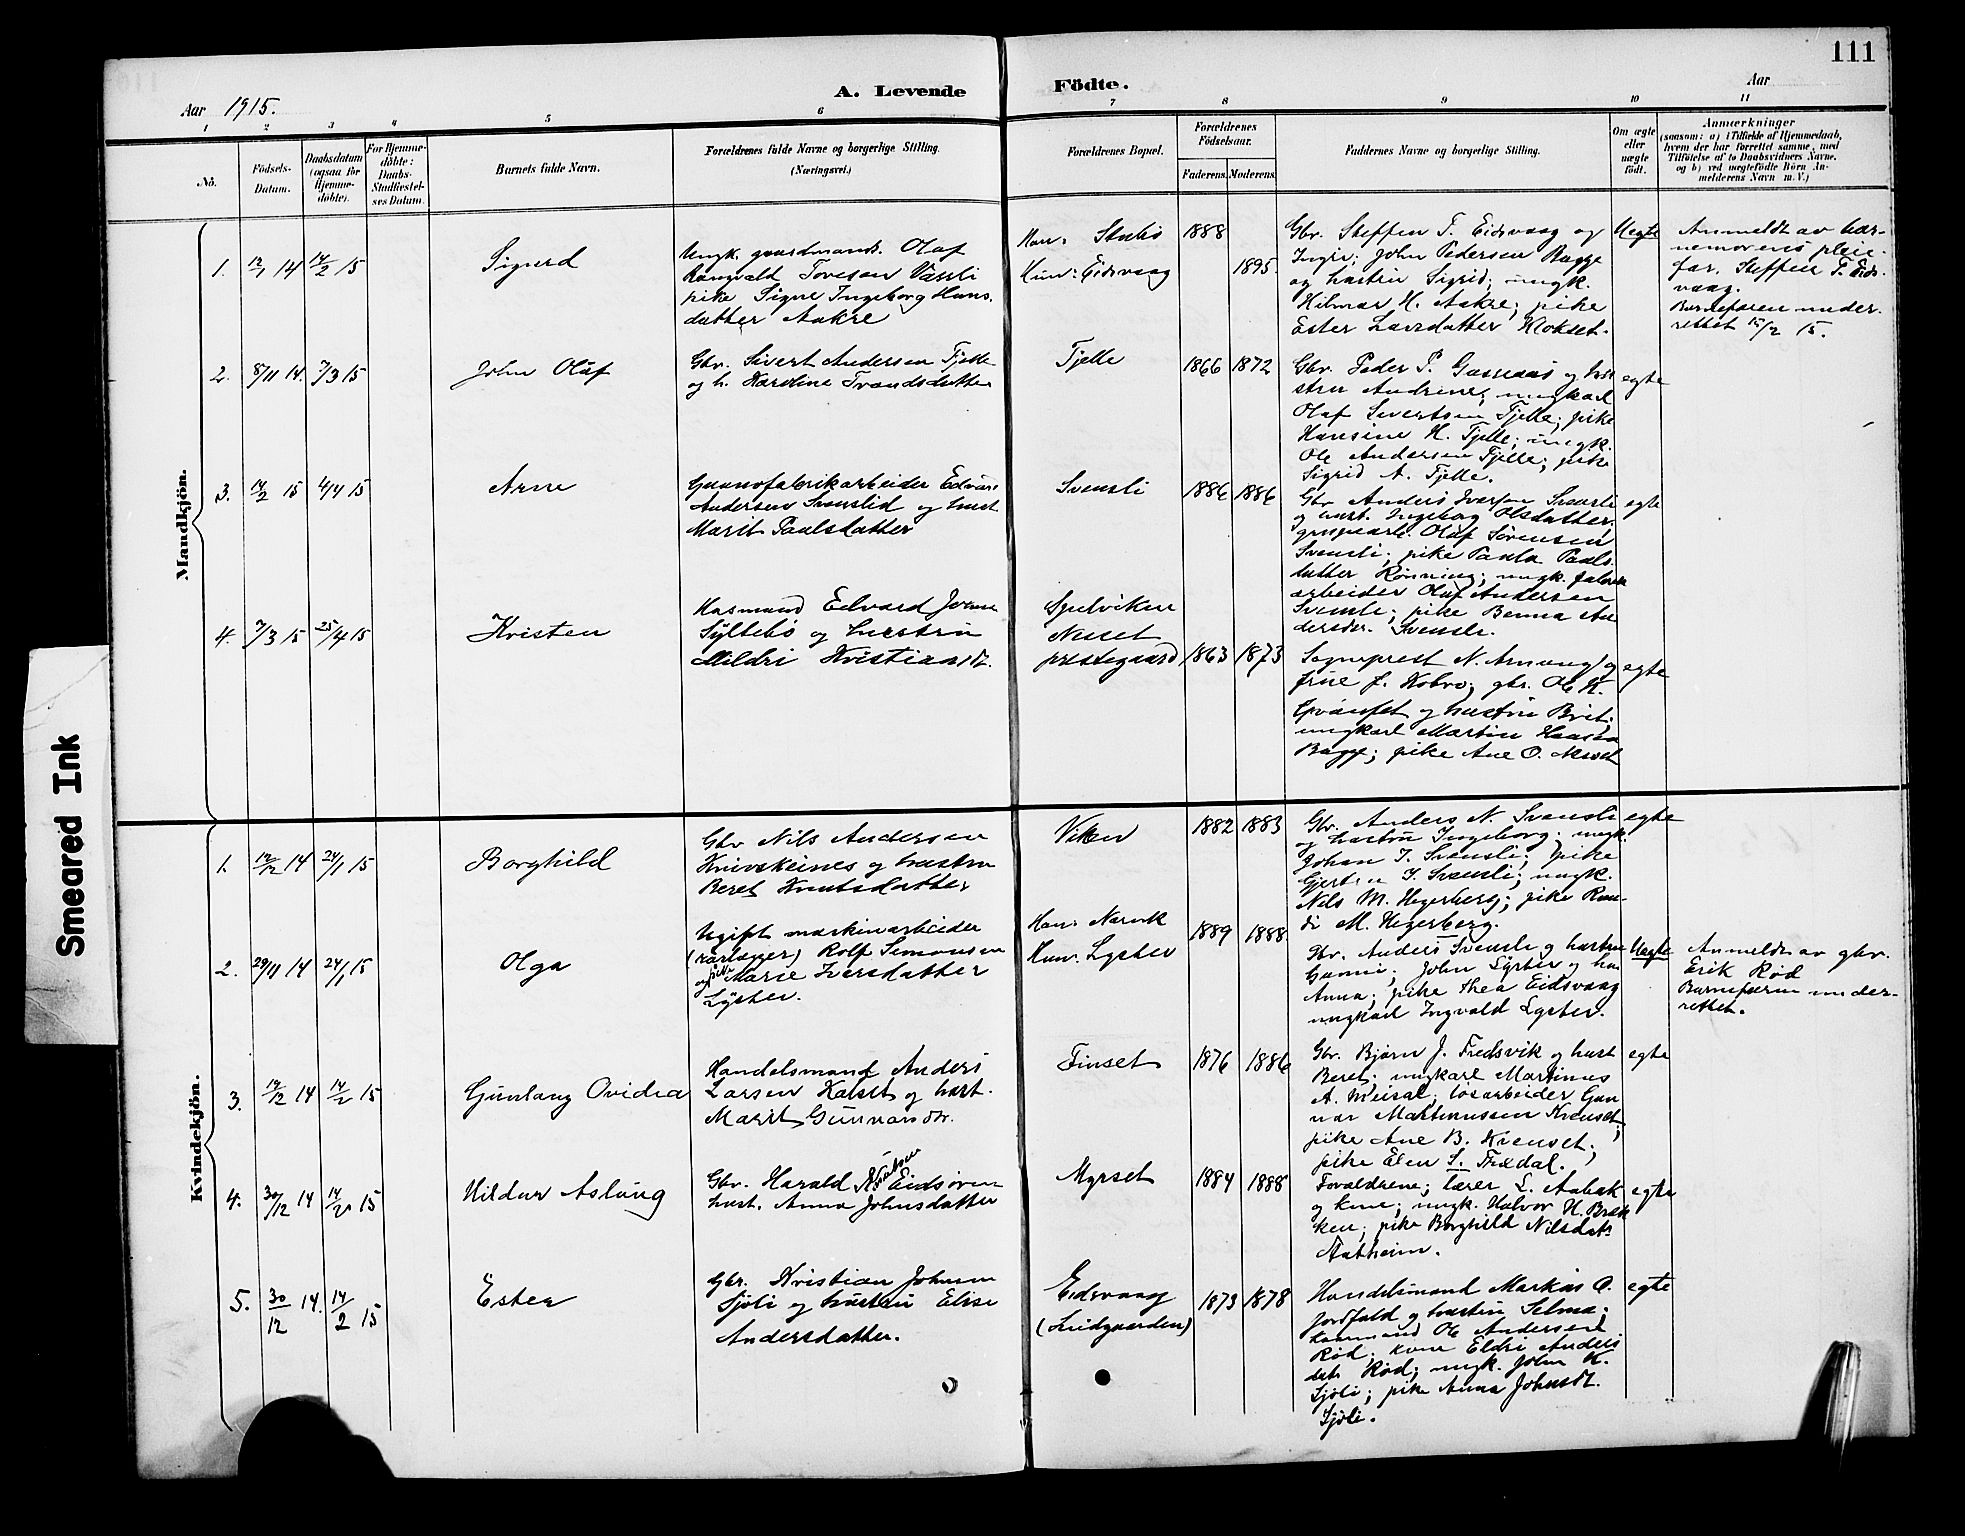 111
A. Levende Födte.
Aar 1915.
Aar
1 2 3 4 5 6 7 8 9 10 11
No.
Födsels-Datum.
Daabsdatum (ogsaa for Hjemme-döbte).
For Hjemme-döbte: Daabs-Stadfæstel-ses Datum.
Barnets fulde Navn.
Forældrenes fulde Navne og borgerlige Stilling.
(Næringsvei.)
Forældrenes Bopæl.
Forældrenes Födselsaar.
Faderens. Moderens.
Faddernes Navne og borgerlige Stilling.
Om ægte eller uægte födt.
Anmærkninger
(saasom: a) i Tilfælde af Hjemmedaab,
hvem der har forrettet samme, med
Tilföielse af to Daabsvidners Navne,
og b) ved uægtefödte Börn An-
melderens Navn m. V.)
Mandkjön.
1. 12/1 14 14/2 15
Sigurd
Ungk. gaardmands. Olaf
Rangvald Toresen Vassli
pike Signe Ingeborg Hans.
datter Aakre
Han: Stubö
Hun: Eidsvaag
1888
1895.
Gbr. Steffen T. Eidsvaag og
Ingri; John Pedersen Bagge
og hustru Sigrid; ungk.
Hilmar H. Aakre; pike
Ester Larsdatter Klokset.
Uegte
Anmeldt av bar-
nemorens pleie-
far. Steffen T. Eids-
vaag.
Barnefaren under-
rettet 15/2 15.
2. 8/11 14. 7/3 15
John Olaf
Gbr. Sivert Andersen Tjelle
og h. Karoline Trondsdatter
Tjelle
1866 1872
Gbr. Peder P. Gusiaas og hu-
stru Andrine; ungkarl
Olaf Sivertsen Tjelle; pike
Hansine H. Tjelle; ungk.
Ole Andersen Tjelle; pike
Sigrid A. Tjelle.
egte
3. 14/2 15 4/4 15
Arne
Guanofabrikarbeider Edvard
Andersen Svenslid og hust
Marit Paalsdatter
Svensli
1886 1886
Gbr Anders Iversen Svensli
og hust. Ingeborg Olsdatter.
Olaf Sörensen
Svensli; pike Paula Paals
datter Rönning; ungk. fabrik
arbeider Olaf Andersen
Svensli; pike Benna An
dersdtr. Svensli.
egte
4. 7/3 15 25/4 15
Kristen
Husmand Edvard Joens
Syltebö og hustru
Mildri Kristiansdt.
Spelviken
Nesset
prestegaard
1863 1873
Sogneprest N. Amundt og
frue f. Kobro; gbr. Ole K.
og hustru Brit;
ungkarl Martin Hansen
Bagge; pike Ane O. Nesset
egte
Kvindekjön.
1. 12/12 14 24/1 15
Borghild
Gbr Nils Andersen
Knivskeines og hustru
Beret Knutsdatter
Viken
1882 1883
Gbr. Anders N. Svensli
og hustru Ingeborg; ungk.
Johan I. Svensli; pike
I. Svensli; ungk.
Nils M. Hegerberg; pike Ran-
di M. Hegerberg.
egte
2. 29/11 14 24/1 15
Olga
Ugift maskinarbeider
(rörlegger) Rolf Simonsen
og pike Marie Iversdatter
Lyster.
Han: Narvik
Hun: Lyster
1889 1888
Gbr. Anders Svensli og hustru
Gunni; John Lyster og hu
Anna; pike Thea Eidsvaag
ungkarl Ingvald Lyster.
Uegte
Anmeldt av gbr.
Erik Röd
Barnefaren under-
rettet.
3. 14/12 14 14/2 15
Gunlaug Ovidia
Handelsmand Anders
Larsen Kalset og hust.
Marit Gunnarsdtr.
Finset
1876 1886
Gbr. Björn J. Fredsvik og hust
Beret; ungkarl Martinus
A. Meisal; lösarbeider Gun
nar Martinussen Kvenset;
pike Ane B. Kvenset;
pike Elen S. Fredal.
egte
4. 30/12 14 14/2 15
Hildur Aslaug
Gbr. Harald Eidsören
hust. Anna Johnsdatter
Myrset
1884 1888
Forældrene; lærer L. Aabak
og kone; ungk. Halvor H. Brek
ken; pike Borghild Nilsdatt
Aatheim.
egte
5. 30/12 14. 14/2 15
Ester
Gbr. Kristian Johnsen
Sjöli og hustru Elise
Andersdatter.
Eidsvaag
(Lidgaarden)
1873 1878
Handelsmand Markus O.
Jordfald og hustru Selma;
Ole Andersen
Röd; kone Eldri Anders
dtr. Röd; ungk. John K.
Sjöli; pike Anna Johnsdt.
Sjöli.
egte
Smeared Ink